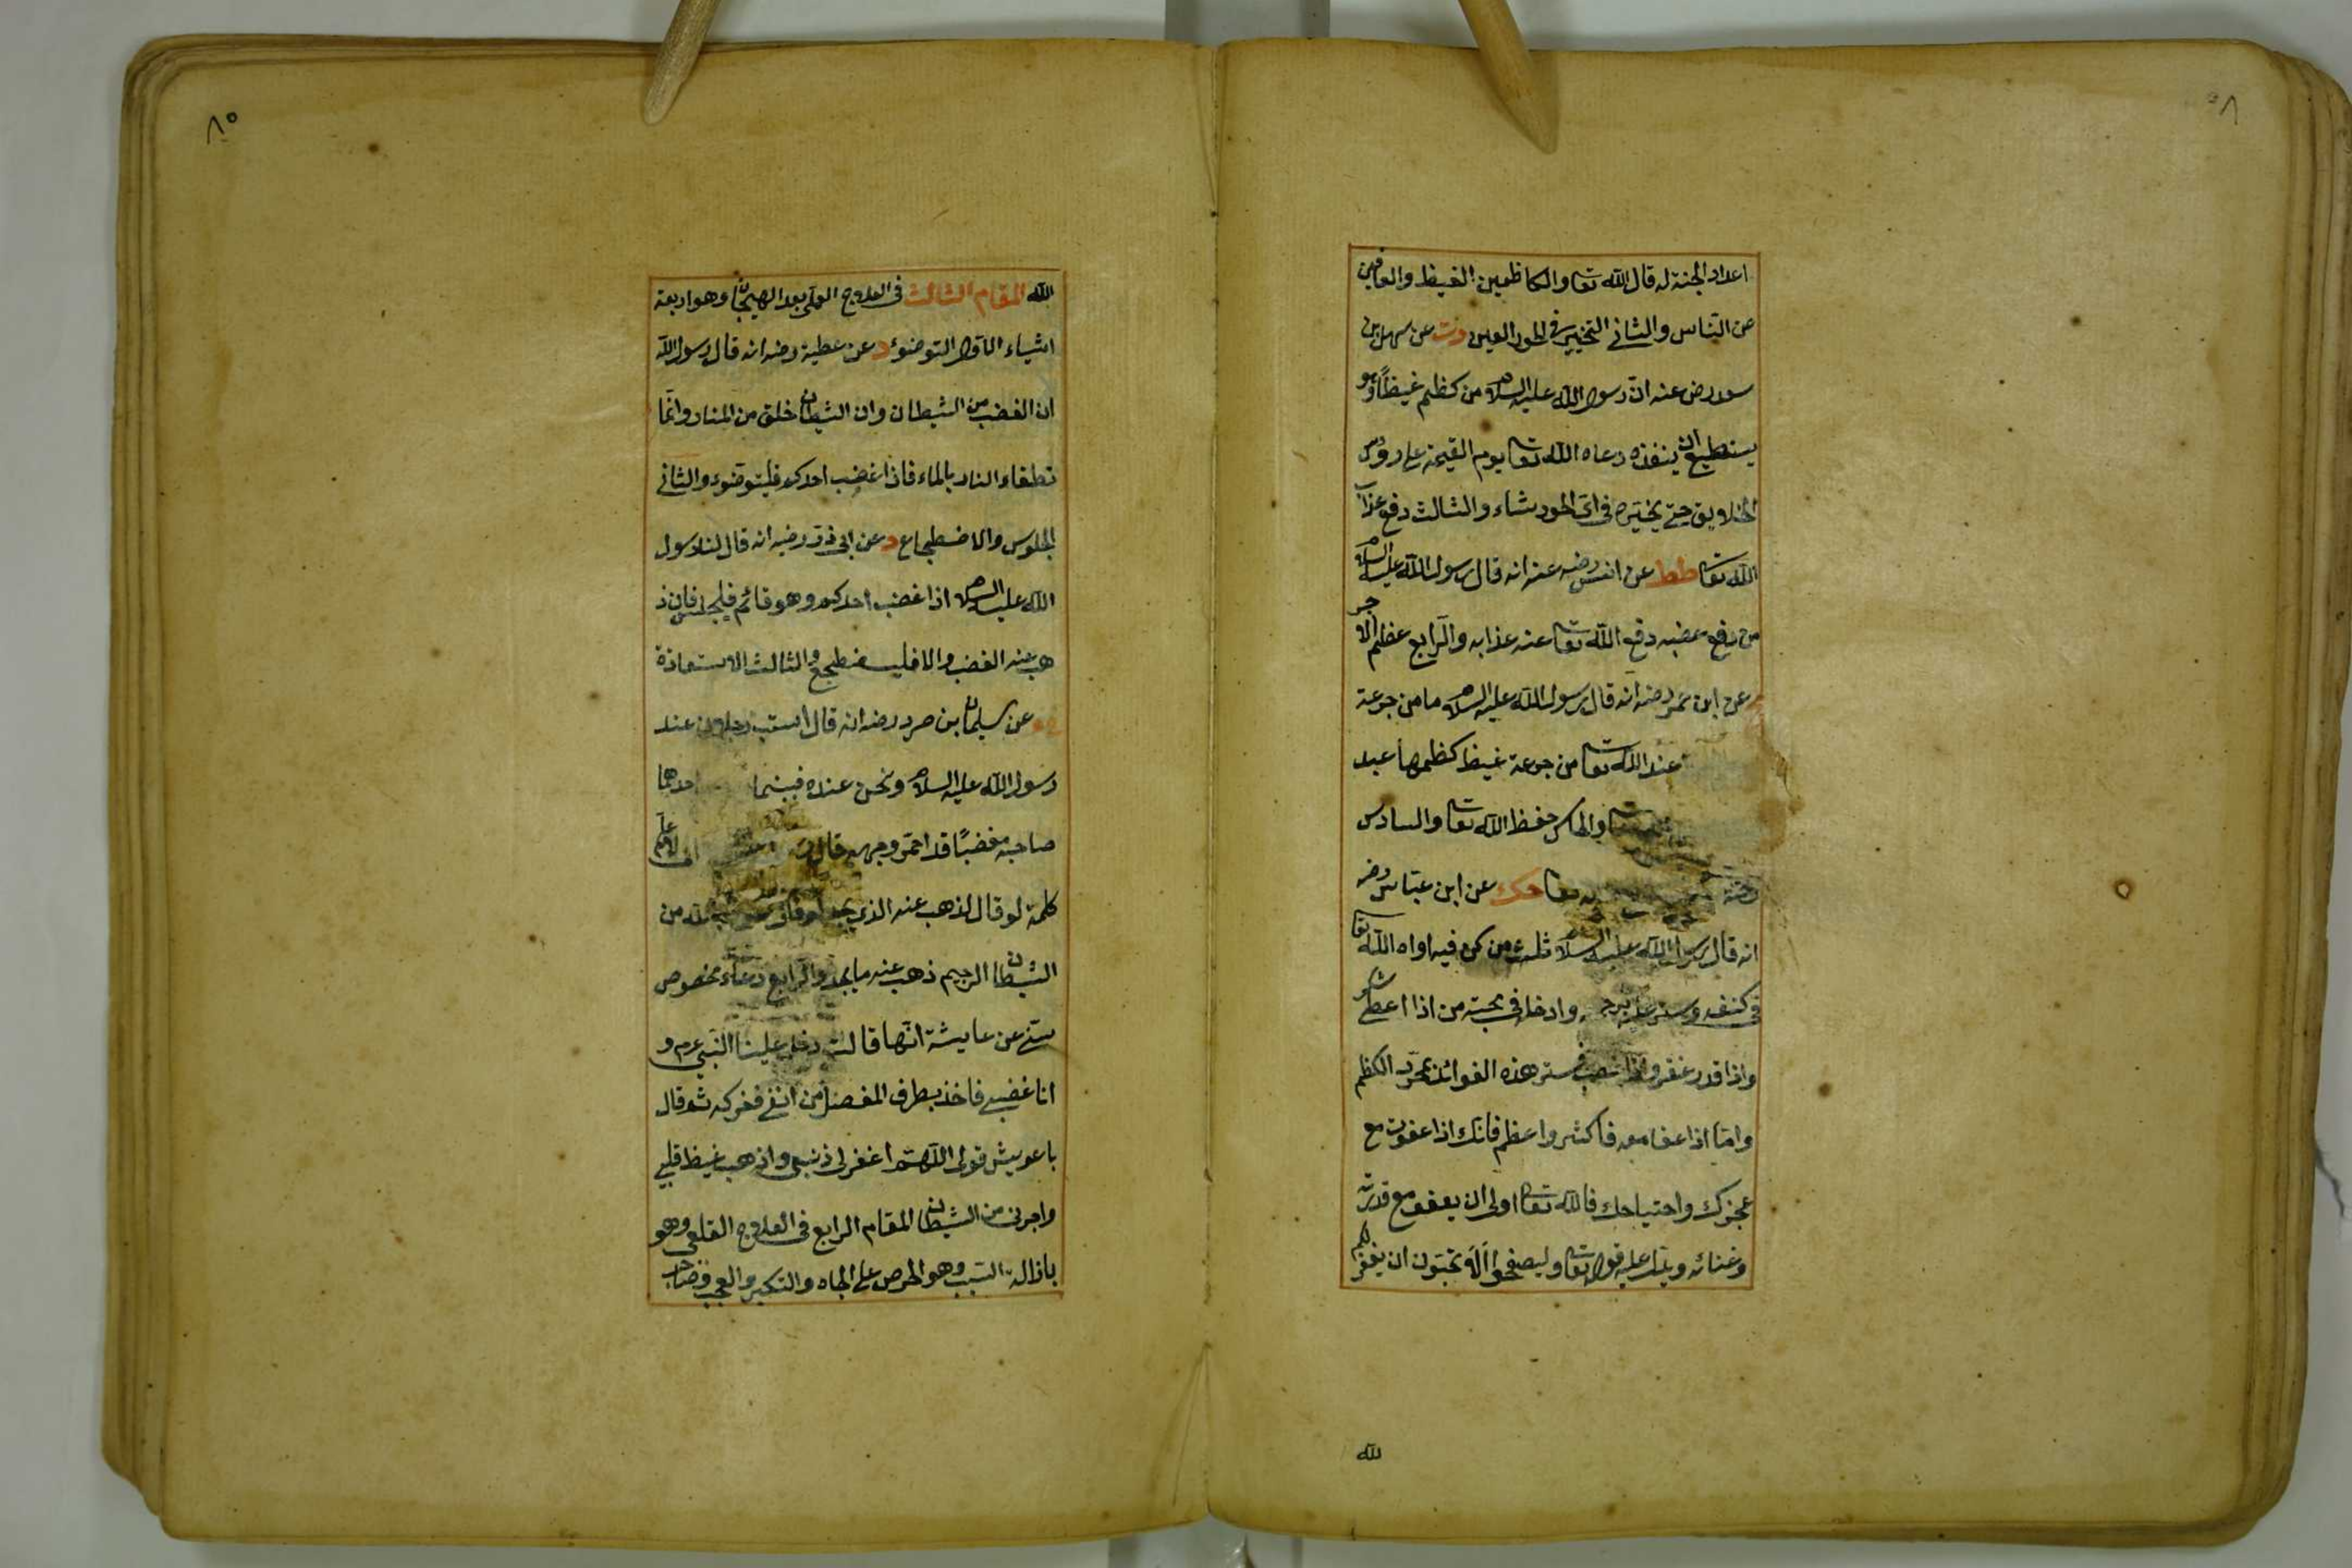 اعداد الجنة له قال الله تعا والكاظمين الغيظ والعافين
عن الناس والثاني التخيير في الحور العين دت عن سهل بن
سعد رض عنه ان رسول الله عليه السلام من كظم غيظا وهو
يستطيع ان ينفذه دعاه الله تعا يوم القيمة على روس
الخلايق حتى يخيره في اى الحور شاء والثالث دفع عذاب
الله تعا طط عن انس رضه عنه انه قال رسول الله عليه السلام
من دفع غضبه دفع الله تعا عنه عذابه والرابع عظم الاجر
عن ابن عمر رضه انه قال رسول الله عليه السلام ما من جرعة
عند الله تعا من جرعة غيظ كظمها عبد
حفظ الله تعا والسادس
تعا حك عن ابن عباس رضه
انه قال رسول الله عليه السلام ثلث من كن فيه اواه الله تعا
في كنفه وستر عليه وادخله في محبته من اذا اعطى شكر
واذا قدر غفر واذا غضب فتر هذه الفوائد لمجرد الكظم
واما اذا عفا معه فاكثر واعظم فانك اذا عفوت مع
عجزك واحتياجك فالله تعا اولى ان يعفو مع قدرته
وغنائه ويدل عليه قوله تعا وليصفحوا الا تحبون ان يغفر لكم
لله
٨٠
الله المقام الثالث في العلاج العملى بعد الهيجان وهو اربعة
اشياء الاول التوضوء د عن عطية رضه انه قال رسول الله
ان الغضب من الشيطان وان الشيطان خلق من النار وانما
تطفاء النار بالماء فاذا غضب احدكم فليتوضوء والثاني
الجلوس والاضطجاع د عن ابى ذر رضه انه قال لنا رسول
الله عليه السلام اذا غضب احدكم وهو قائم فليجلس فان ذ
هب عنه الغضب والا فليضطجع والثالث الاستعاذة
عن سليمان بن صرد رضه انه قال استب رجلان عند
رسول الله عليه السلام ونحن عنده فبينما احدهما
صاحبه مغضبا قد احمر وجهه قال انى لاعلم
كلمة لو قال لذهب عنه الذى يجد لو قال اعوذ بالله من
الشيطان الرجيم ذهب عنه ما يجد والرابع دعاء مخصوص
سنى عن عايشة انها قالت دخل علينا النبى عم و
انا غضبى فاخذ بطرف المفصل من انفى فعركه ثم قال
يا عويش قولى اللهم اغفر لى ذنبى واذهب غيظ قلبى
واجرنى من الشيطان المقام الرابع في العلاج القلعى وهو
بازالة السبب وهو الحرص على الجاه والتكبر والعجب